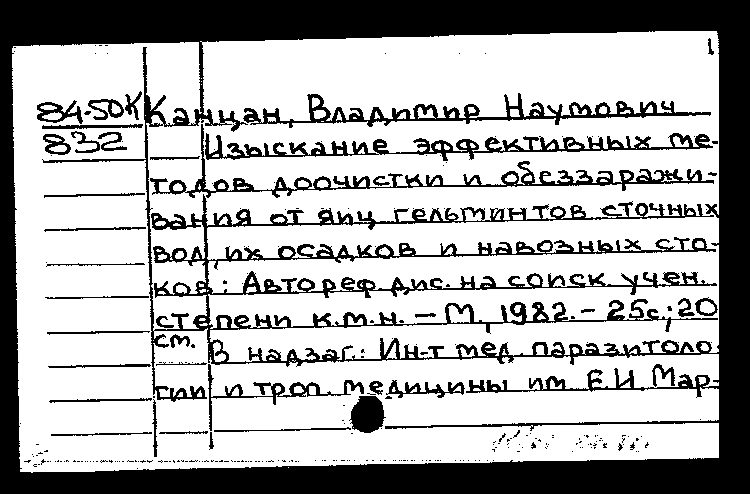 1
84-50К Канцан, Владимир Наумович
832 Изыскание эффективных ме-
тодов доочистки и обеззаражи-
вания от яиц гельминтов сточных
вод, их осадков и навозных сто-
ков: Автореф. дис. на соиск. учен.
степени к.м.н. – М., 1982. – 25с.; 20
см.
В надзаг.: Ин-т мед. паразитоло-
гии и троп. медицины им. Е.И. Мар-